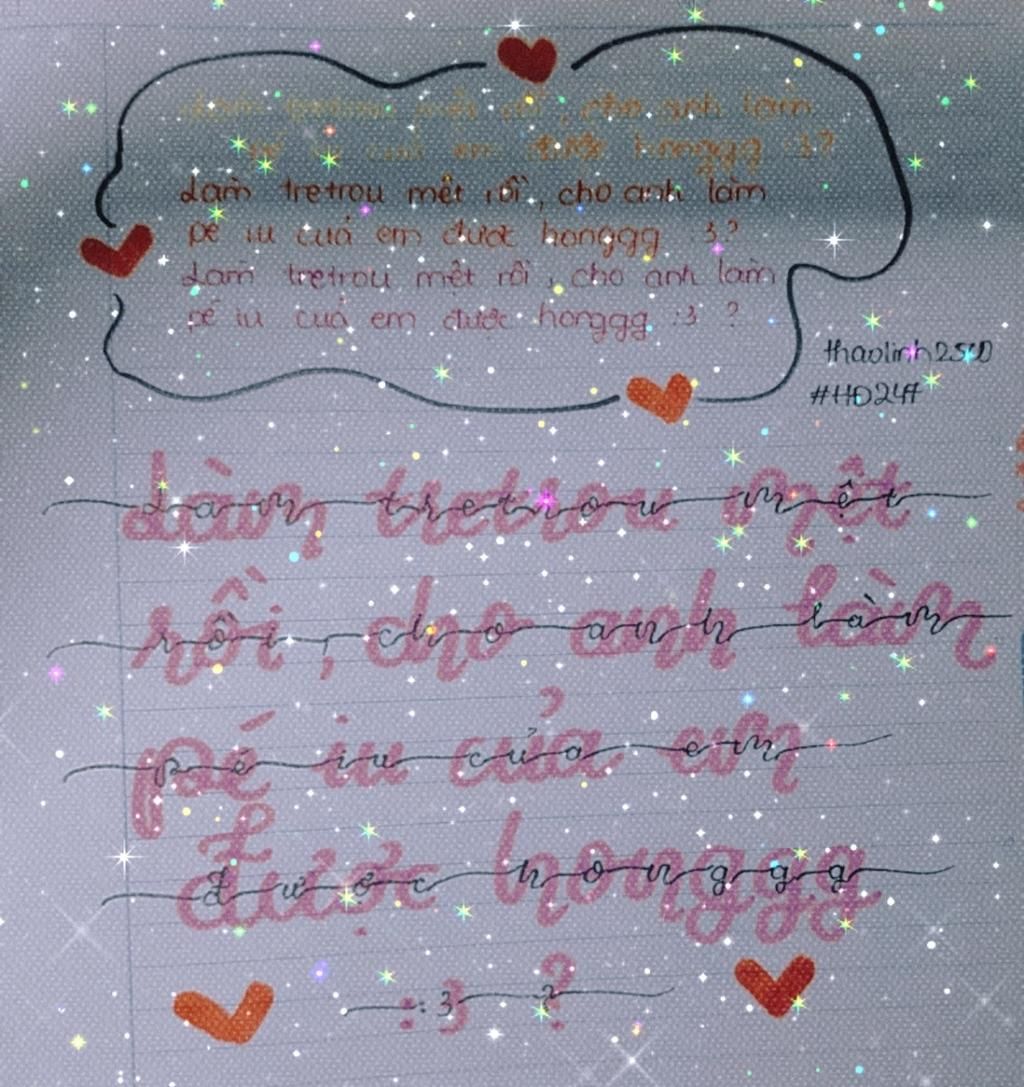 Làm tretrou mệt rồi, cho anh làm
pé iu của em được honggg :3?
Làm tretrou mệt rồi, cho anh làm
pé iu của em được honggg :3?
Làm tretrou mệt rồi, cho anh làm
pé iu của em được honggg :3 ?
#HĐ24#
Làm tretrou mệt
rồi, cho anh làm
pé iu của em
được honggg
:3 ?